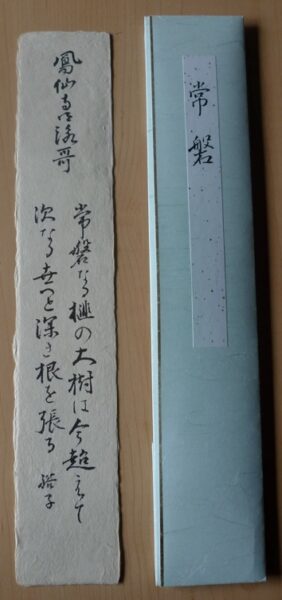 鳳仙寺詠哥
常磐なる榧の大樹は今超えて
次なる世へと深き根を張る
常磐